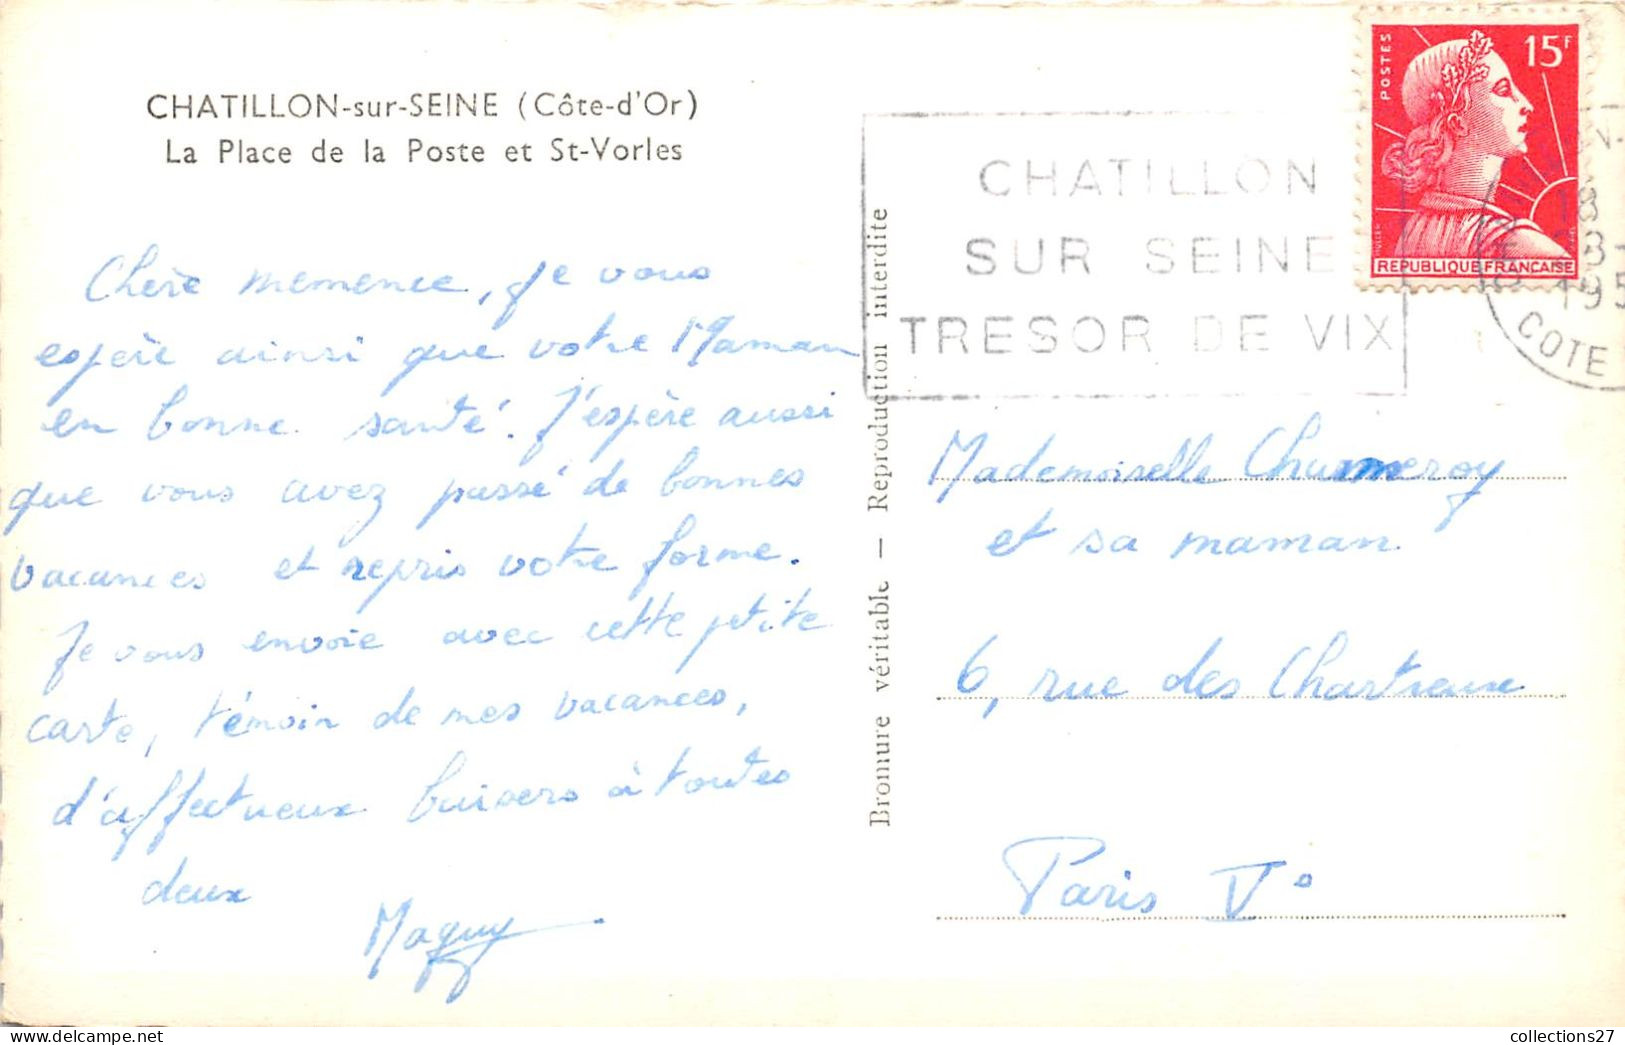 CHATILLON-sur-SEINE (Côte-d'Or)
La Place de la Poste et St-Vorles
Chère memence, je vous
espère ainsi que votre Maman
en bonne santé. J'espère aussi
que vous avez passé de bonnes
vacances et repris votre forme.
Je vous envoie avec cette petite
carte, témoin de mes vacances,
d'affectueux baisers à toutes
deux
Maguy
Bromure véritable — Reproduction interdite
CHATILLON
SUR SEINE
TRESOR DE VIX
POSTES
15F
REPUBLIQUE FRANCAISE
18
195
COTE
Mademoiselle Chumeroy
et sa maman
6, rue des Chartreux
Paris V°
collections27